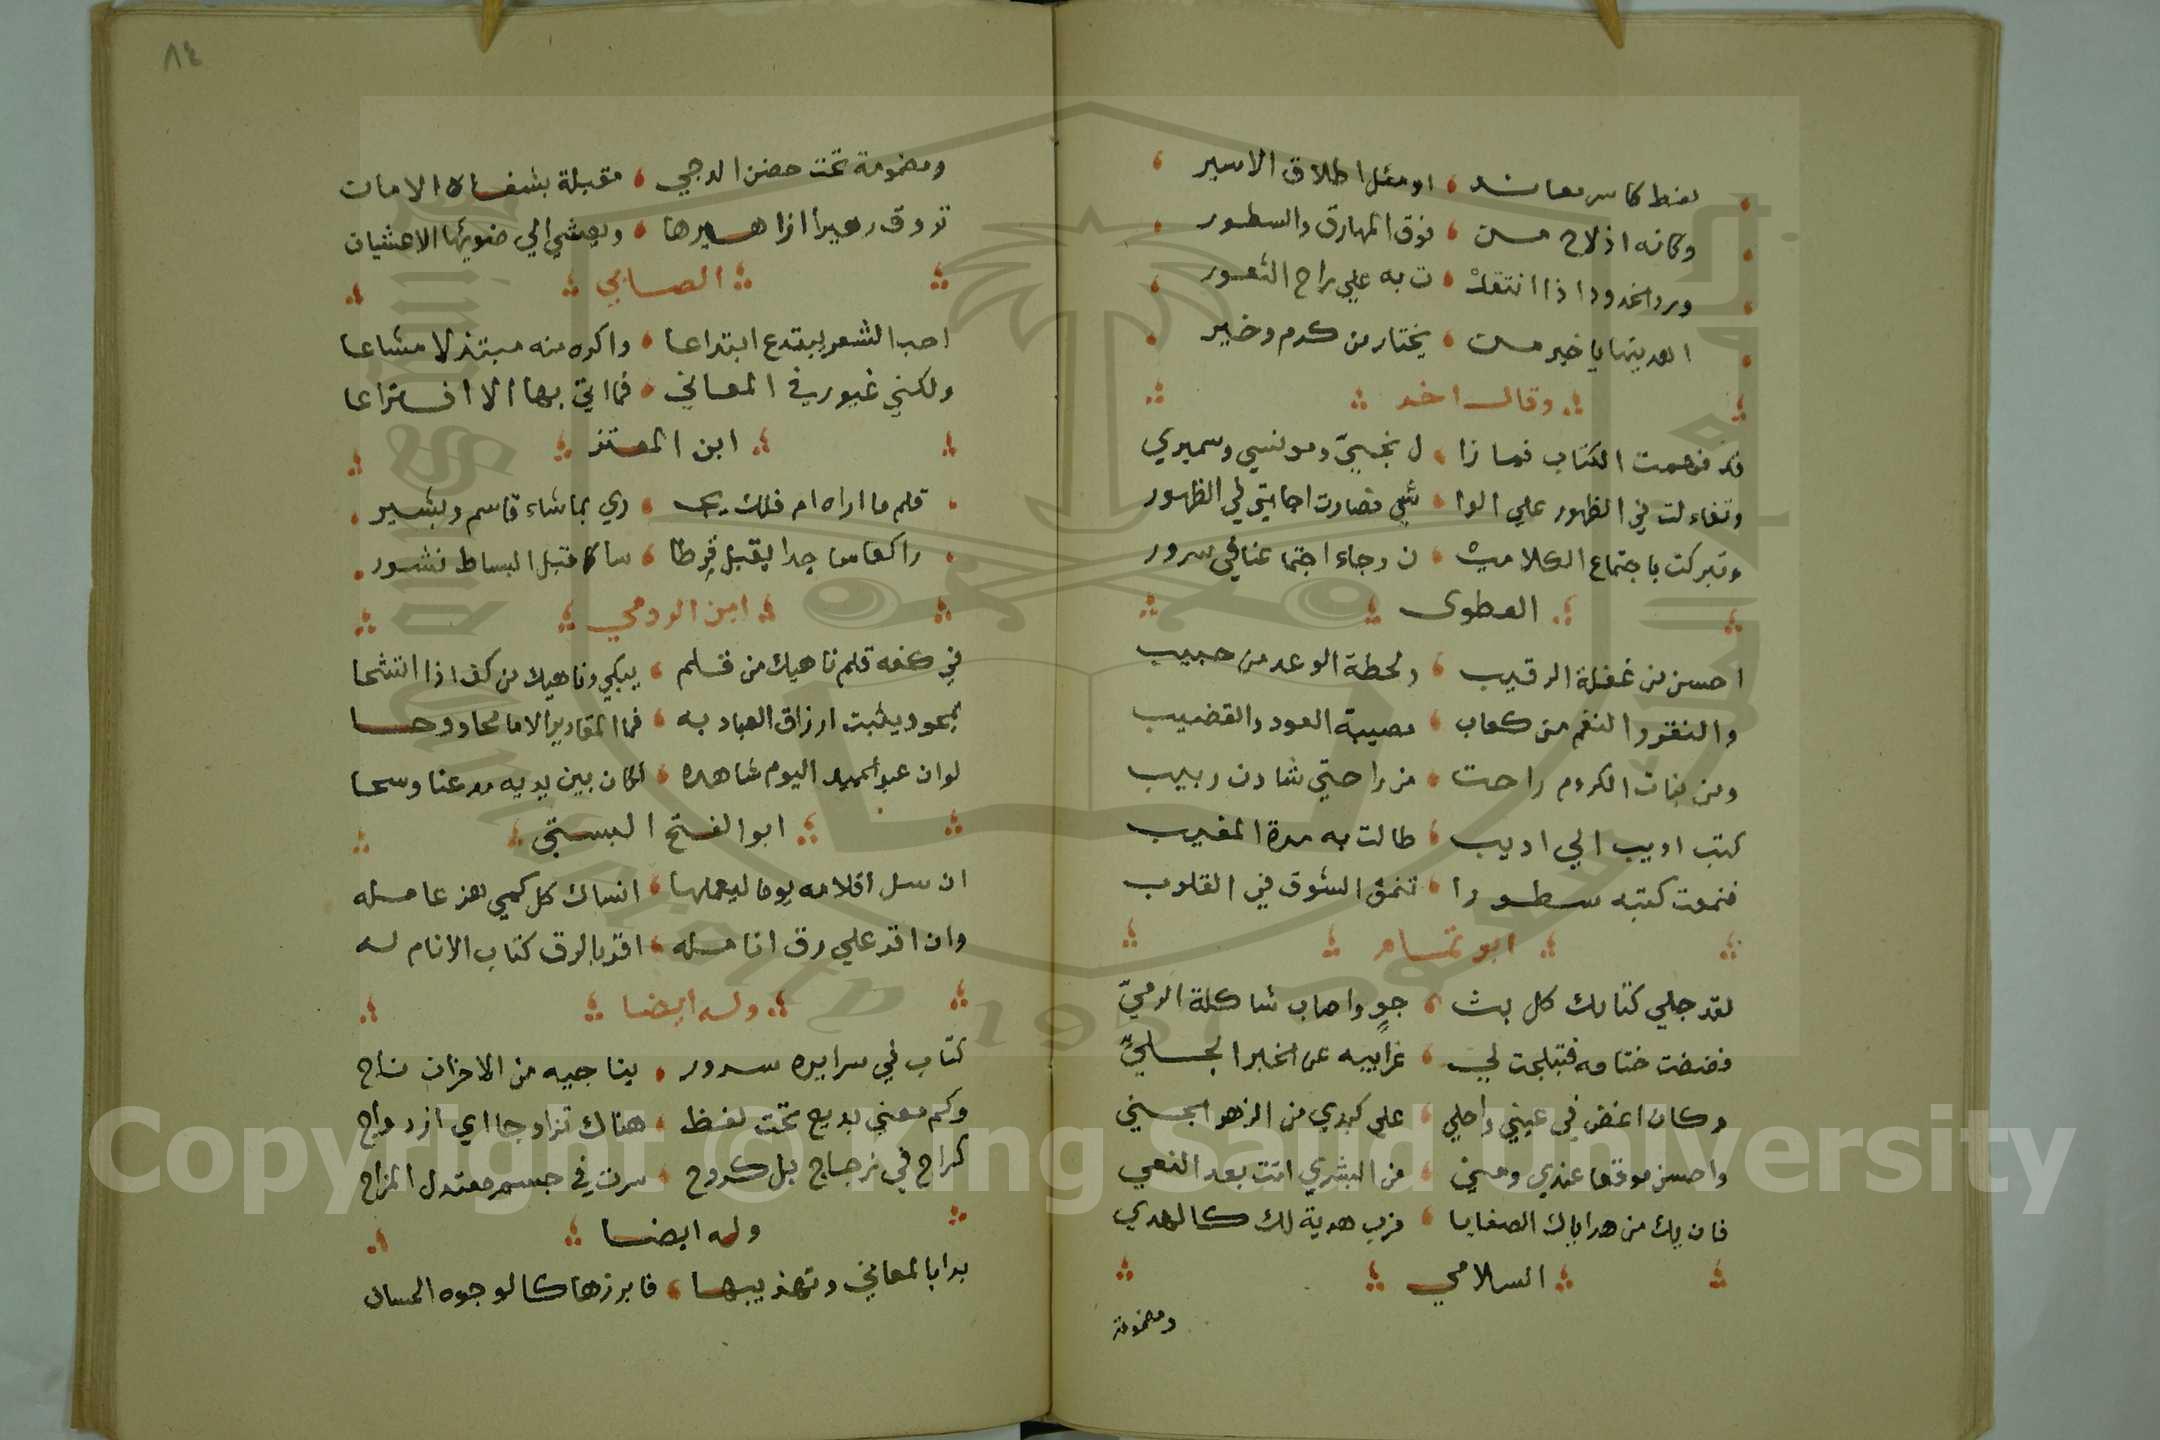 لفظ كاسر معاند او مثل اطلاق الاسير
وكانه اذ لاح من فوق المهارق والسطور
ورد الخدود اذا انتقلـ ت به علي راح الثغور
اهديتها يا خير من يختار من كرم وخير
وقال اخر
قد فهمت الكتاب فما زا ل نجيي ومونسي وسميري
وتفاءلت في الظهور علي الوا شي فصارت اجابتي لي الظهور
وتبركت باجتماع الكلامين ن رجاء اجتماعنا في سرور
العطوى
احسن من غفلة الرقيب ولحظة الوعد من حبيب
والنقر والنغم من كعاب مصيبة العود والقضيب
ومن بنات الكروم راحت من راحتي شادن ربيب
كتب اديب الي اديب طالت به مدة المغيب
فنمت كتبه سطورا تنمق الشوق في القلوب
ابو تمام
لقد جلي كتابك كل بث جوٍ واصاب شاكلة الرميّ
فضضت ختامه فتبلجت لي غرايبه عن الخبر الجليّ
وكان اغض في عيني واحلي علي كبدي من الزهو الجني
واحسن موقعا عندي ومني من البشري اتت بعد النعي
فان يك من هداياك الصفايا فرب هدية لك كالهدي
السلامي
ومضمومة
٨٤
ومضمومة تحت حضن الدجي مقبلة بشفاه الامان
تروق زهيرا اذا هيرها ويعشي الي ضويها الاعشيان
الصابي
احب الشعر يبتدع ابتداعا واكره منه مبتذلا مشاعا
ولكني غيور في المعاني فما اتي بها الا افتراعا
ابن المعتز
قلم ما اراه ام فلك يجـ ري بما شاء قاسم ويشير
راكعا ساجدا يقبل قرطا سا كما قبل البساط نشور
ابن الرومي
في كفه قلم ناهيك من قلم يبكي وناهيك من كف اذا اتشحا
يمحو ويثبت ارزاق العباد به فما المقادير الا ما محا ووحا
لو ان عبد الحميد اليوم شاهده لكان بين يديه مدعنا وسحا
ابو الفتح البستي
ان سل اقلامه يوما ليعملها انساك كل كمي هز عامله
وان اقر علي رق انامله اقر بالرق كتاب الانام له
وله ايضا
كتاب في سرايره سرور يناجيه من الاحزان ناج
وكم معني بديع تحت لفظ هناك تزاوجا اي ازدواج
كراح في زجاج بل كروح سرت في جسم معتدل المزاج
وله ايضا
بدا بالمعاني وتهذيبها فابرزها كالوجوه الحسان
Copyright © King Saud University